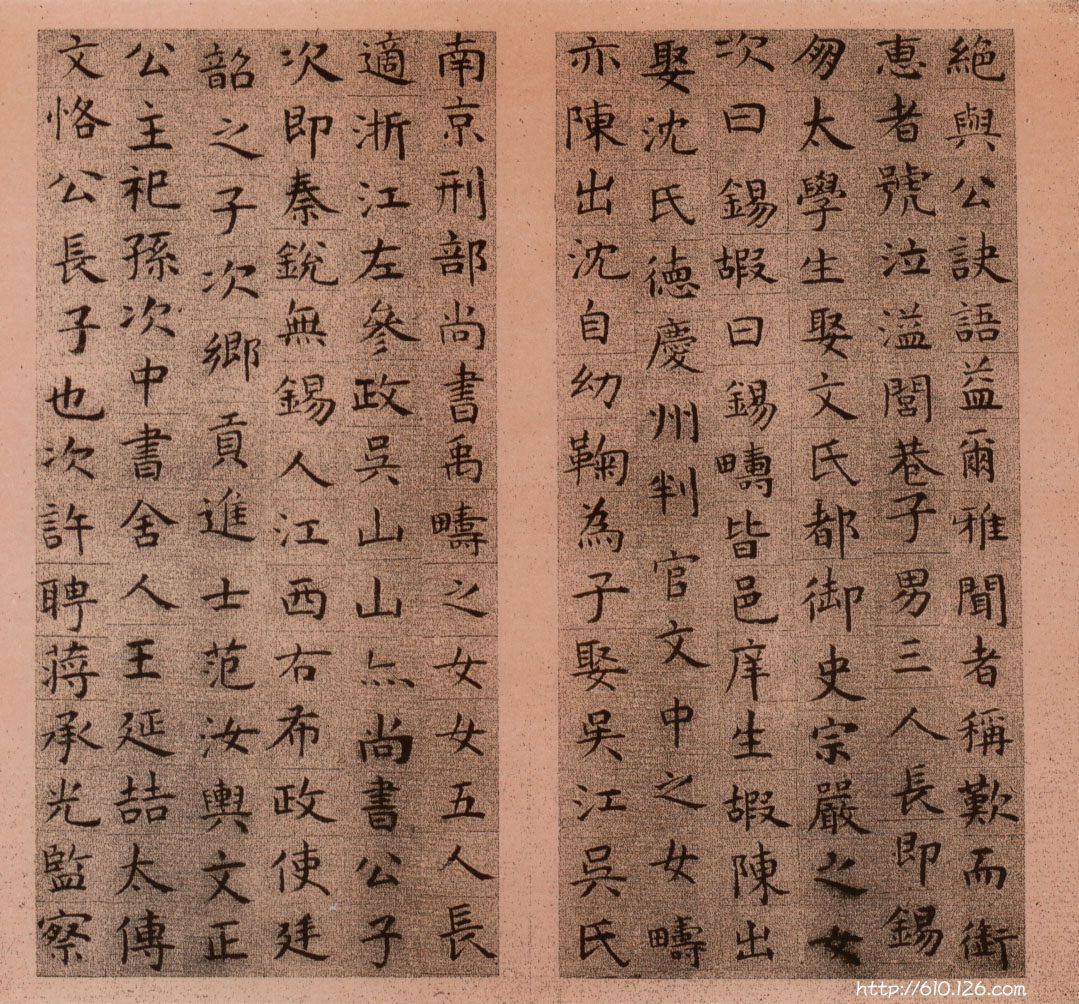 絕與公訣語益爾雅聞者稱歎而銜
惠者號泣溢閭巷子男三人長即錫
匆太學生娶文氏都御史宗嚴之女
次曰錫嘏曰錫疇皆邑庠生嘏陳出
娶沈氏德慶州判官文中之女疇
亦陳出沈自幼鞠為子娶吳江吳氏
南京刑部尚書禹疇之女女五人長
適浙江左參政吳山山亦尚書公子
次即秦銳無錫人江西右布政使廷
韶之子次鄉貢進士范汝輿文正
公主祀孫次中書舍人王延喆太傅
文恪公長子也次許聘蔣承光監察
http://610.126.com